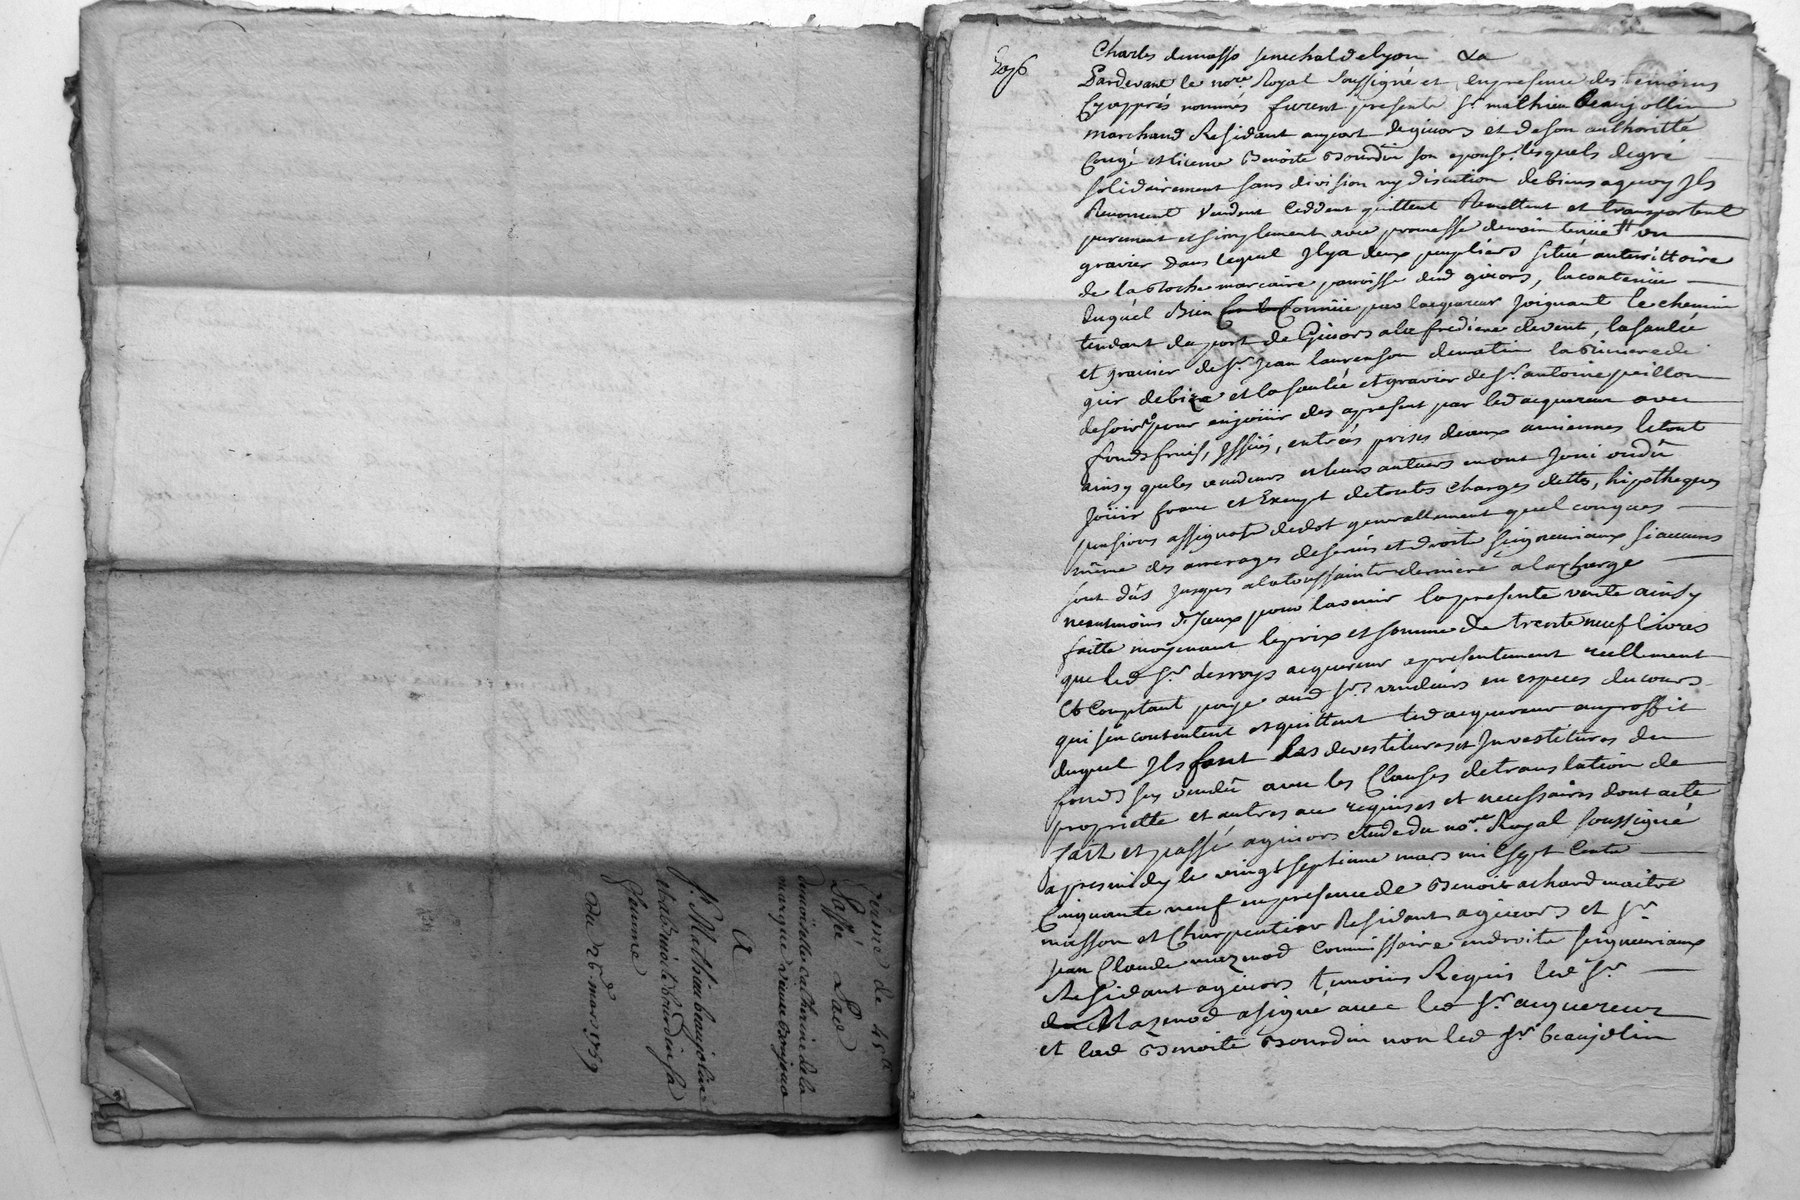 Ferme de 45 #
Passée Par
demoiselle catherine de la
marque veuve bonjour
A
Sr. Mathieu beaujolin
et a benoite bourdin sa
femme
Du 26 mars 1759
Charles demasso senechal de lyon
Pardevant le nore. Royal soussigné et en presence des temoins
Cy apprés nommés furent presents sr. mathieu Beaujollin
marchand Residant au port de givors et de son authoritté
Congé et licence Benoite Bourdin son epouse lesquels de gré
solidairement sans division ny discution de biens a quoy Ils
Renoncent Vendent Ceddent quittent Remettent et transportent
purement et simplement avec promesse de maintenüe un
gravier dans lequel Il y a deux peupliers situé au territtoire
de la Roche marcaire parroisse dud givors, la contenüe
duquel Bien Connüe par lacquereur Joignant le chemin
tendant du port de Givors a la frediere de vent, la saulée
et gravier de sr. Jean laurenson de matin la Riviere de
gier de bize et la saulée et gravier de sr. antoine peillon
de soir pour en joüiir des a present par led acquereur avec
fonds fruis, Issües, entrées prises deaux anciennes le tout
ainsy que les vendeurs et leurs auteurs en ont Joui ou dû
Joüir franc et Exempt de toutes Charges dettes, hipotheques
pensions assignats de dot generallement quel conques
même des arrerages de servis et droits seigneuriaux si aucuns
sont dûs Jusques a la toussaints derniere a la charge
neantmoins d'Iceux pour lavenir la presente vente ainsy
faitte moyenant le prix et somme de trente neuf Livres
que led sr. desroys acquereur a presentement reellement
et Comptant payé aud srs. vendeurs en especes du cours
qui sen contentent et quittent led acquereur au proffit
duquel Ils font les devestitures et Investitures du
fonds sus vendû avec les Clauses de translation de
proprietté et autres au requises et necessaires dont acte
fait et passé a givors etude du nore. Royal soussigné
apres midy le vingt septieme mars mil sept Cents
Cinquante neuf en presence de Benoit achard maitre
masson et Charpentier Residant a givors et sr.
Jean Claude mazenod Commissaire en droits seigneuriaux
Residant a givors temoins Requis led sr.
Mazenod a signé avec led sr. acquereur
et lad Benoite Bourdin non led sr. beaujolin